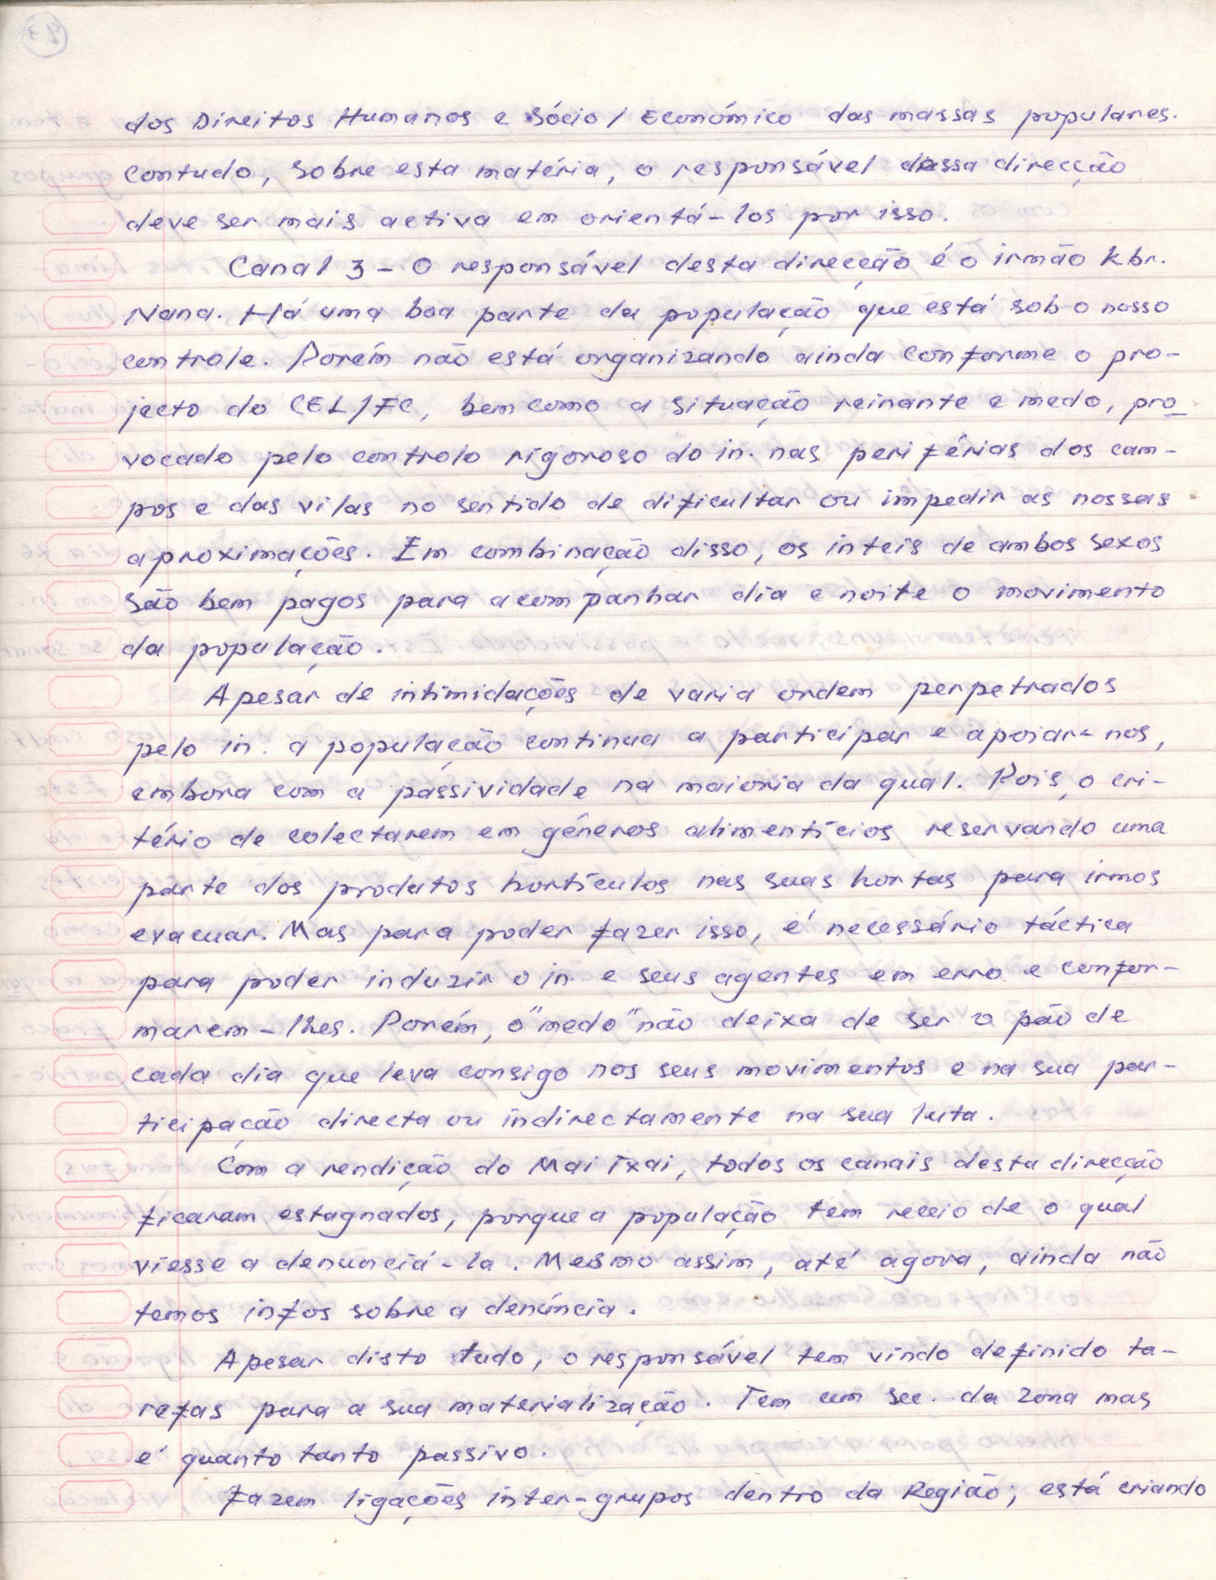 dos Direitos Humanos e Sócio/Económico das massas populares.
Contudo, sobre esta matéria, o responsável dessa direcção
deve ser mais activa em orientá-los por isso.
Canal 3 - O responsável desta direcção é o irmão kbr.
Nana. Há uma boa parte da população que está sob o nosso
controle. Porém não está organizando ainda conforme o pro-
jecto do CEL/FC, bem como a situação reinante e medo, pro-
vocado pelo controlo rigoroso do in. nas periférias dos cam-
pos e das vilas no sentido de dificultar ou impedir as nossas
aproximações. Em combinação disso, os inteis de ambos sexos
são bem pagos para acompanhar dia e noite o movimento
da população.
Apesar de intimidações de varia ordem perpetrados
pelo in. a população continua a participar e apoiar-nos,
embora com a passividade na maioria da qual. Pois, o cri-
tério de colectarem em géneros alimentícios reservando uma
parte dos produtos hortículos nas suas hortas para irmos
evacuar. Mas para poder fazer isso, é necessário táctica
para poder induzir o in. e seus agentes em erro e confor-
marem-lhes. Porém, o "medo" não deixa de ser o pão de
cada dia que leva consigo nos seus movimentos e na sua par-
ticipação directa ou indirectamente na sua luta.
Com a rendição do Mai Txai, todos os canais desta direcção
ficaram estagnados, porque a população tem receio de o qual
viesse a denunciá-la. Mesmo assim, até agora, ainda não
temos infos sobre a denúncia.
Apesar disto tudo, o responsável tem vindo definido ta-
refas para a sua materialização. Tem um sec. da zona mas
é quanto tanto passivo.
Fazem ligações inter-grupos dentro da Região; está criando